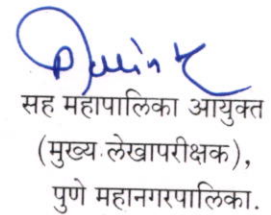 सह महापालिका आयुक्त
(मुख्य लेखापरीक्षक),
पुणे महानगरपालिका.